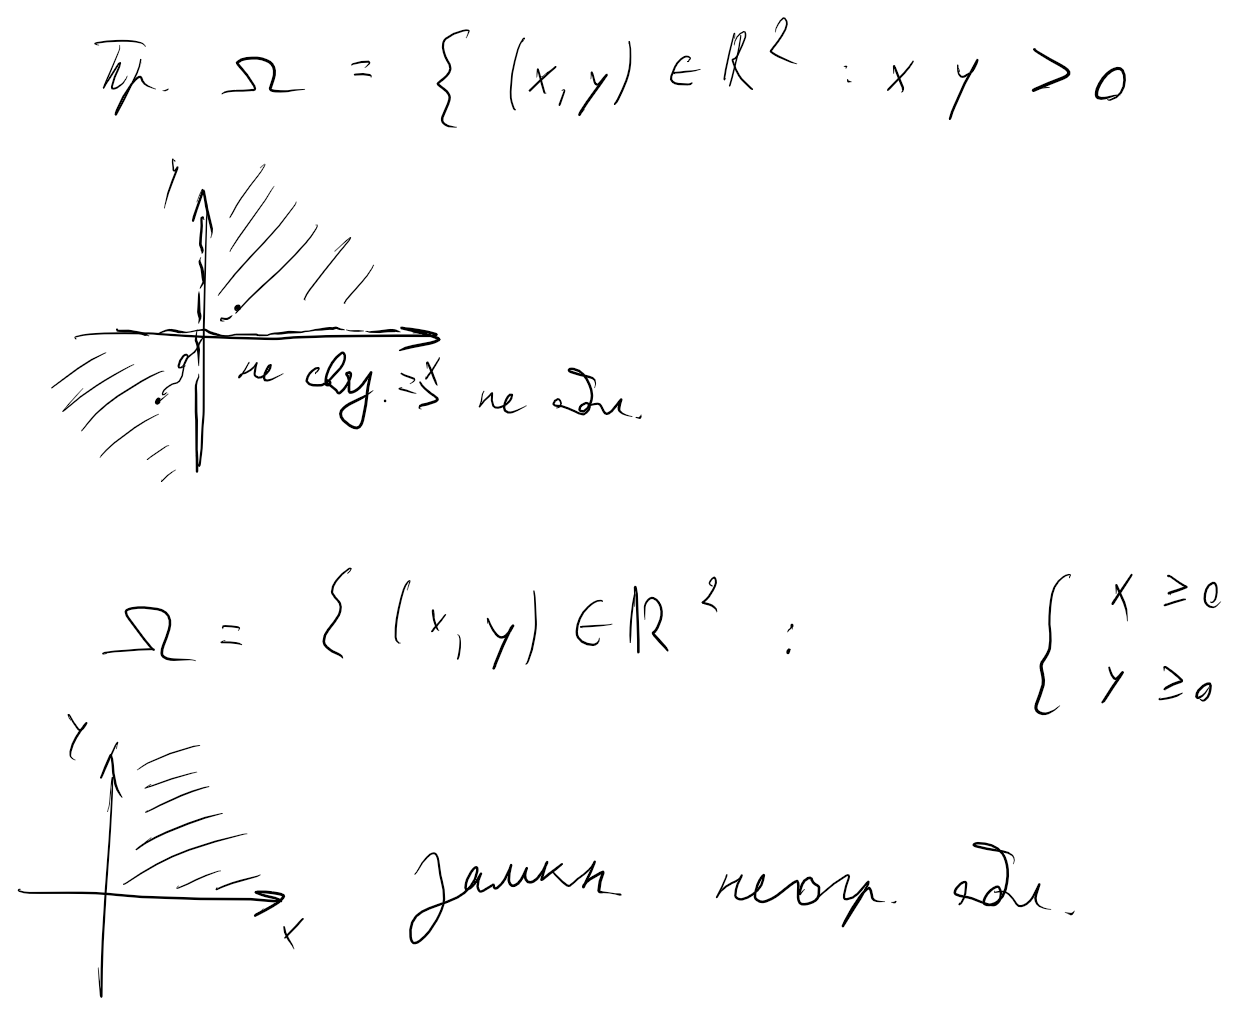 Пр. Ω = { (x, y) ∈ ℝ² : x y > 0
y
x
не связ. => не обл.
Ω = { (x, y) ∈ ℝ² : { x ≥ 0
y ≥ 0
y
x
замкн неогр. обл.